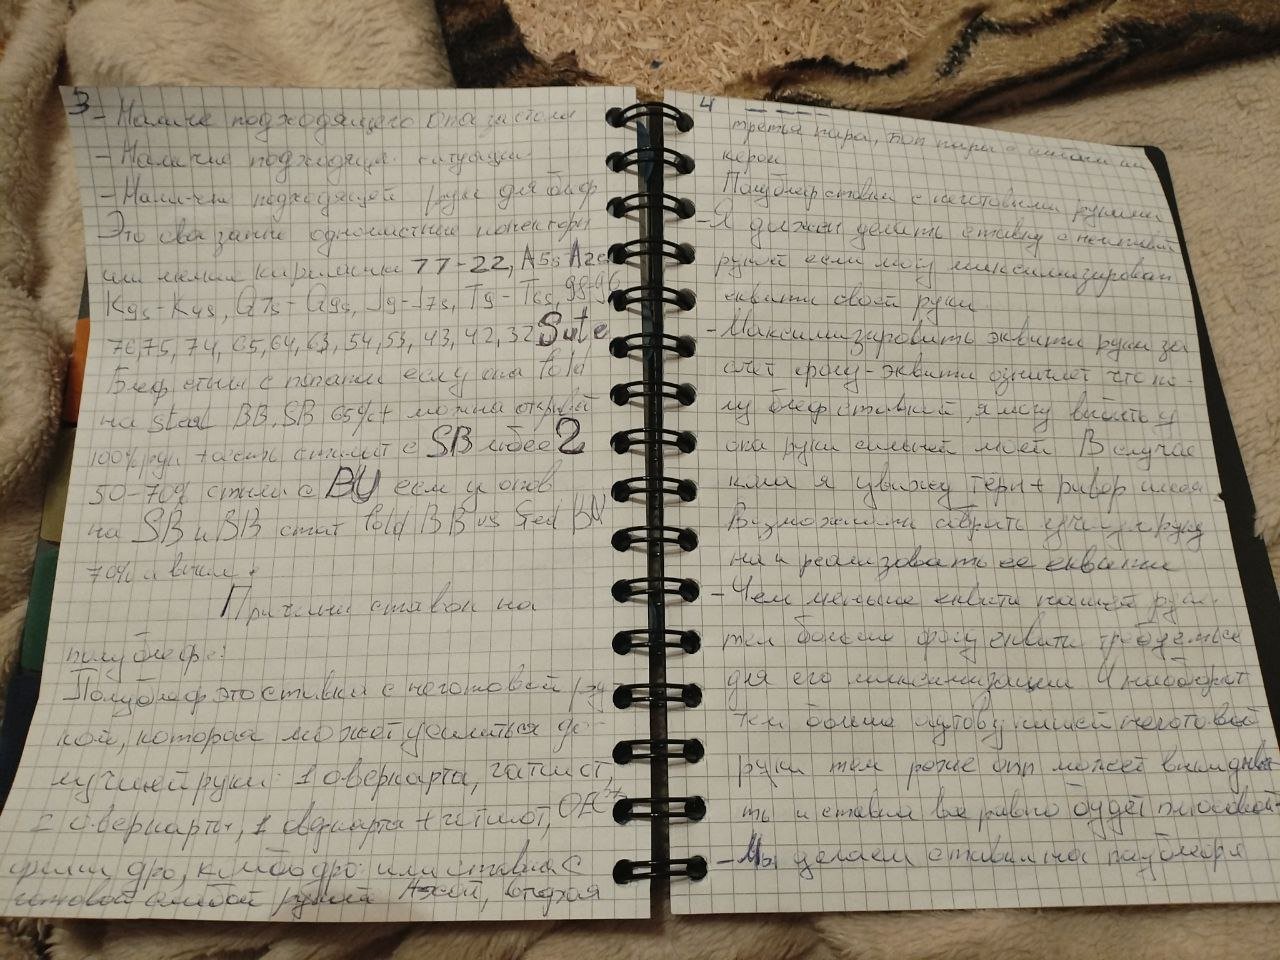 3
- Наличие подходящего опа за столом
- Наличие подходящ. ситуации
- Наличие подходящей руки для блеф
Это связанные одномастные конекторы
или мелкие карманки 77-22, A5s A2s
K9s-K4s, Q7s-Q9s, J9-J7s, T9-T6s, 98-96
76, 75, 74, 65, 64, 63, 54, 53, 43, 42, 32 Sute
Блеф стил с попапки если опа fold
на steal BB, SB 65%+ можно открыв
100% рук стилит с SB любее 2
50-70% стили с BU если у опов
на SB и BB стат fold BB vs Steal BU
70% и выше.
Причины ставок на
полублефе:
Полублеф это ставка с неготовой ру-
кой, которая может усилиться до
лучшей руки: 1 оверкарта, гатшот,
2 оверкарты, 1 овдкарта + гатшот, OESD
флеш дро, комбо дро или ставка с
готовой слабой рукой A-хай, вторая
4
третья пара, топ пара с слабым ки
кером
Полублеф ставки с неготовыми руками
- Я должен делать ставку с неготовой
рукой если могу максимизирован
еквити своей руки
- Максимизировать эквити руки за
счет фолд-эквити означает что по-
лу блеф ставкой, я могу выбить у
опа руки сильней моей В случае
кола я увижу терн + ривер имея
Возможность собрать лучшую руку
и реализовать ее еквити
- Чем меньше еквити нашей руки
тем больше фолд еквити требуемые
для его максимизации И наоборот
чем больше аутов у нашей неготовой
руки тем реже опп может выкидыва-
ть и ставка все равно будет плюсовой
- Мы делаем ставки на полублефе